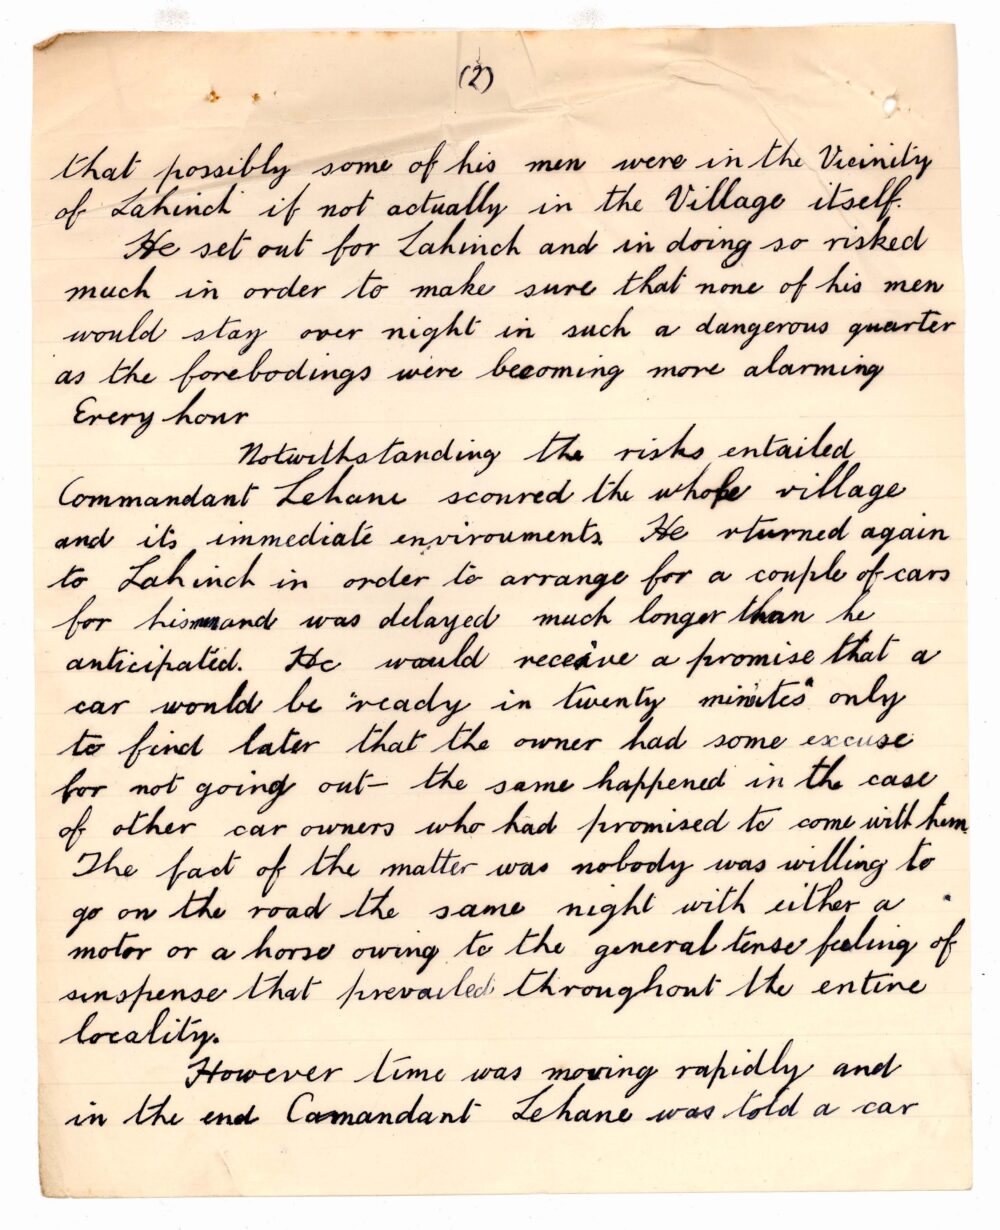 (2)
that possibly some of his men were in the Vicinity
of Lahinch if not actually in the Village itself.
He set out for Lahinch and in doing so risked
much in order to make sure that none of his men
would stay over night in such a dangerous quarter
as the forebodings were becoming more alarming
Every hour
Notwithstanding the risks entailed
Commandant Lehane scoured the whole village
and its immediate envirouments. He rturned again
to Lahinch in order to arrange for a couple of cars
for his men and was delayed much longer than he
anticipated. He would receive a promise that a
car would be "ready in twenty minutes" only
to find later that the owner had some excuse
for not going out — the same happened in the case
of other car owners who had promised to come with them.
The fact of the matter was nobody was willing to
go on the road the same night with either a
motor or a horse owing to the general tense feeling of
sunspense that prevailed throughout the entire
locality.
However time was moving rapidly and
in the end Camandant Lehane was told a car